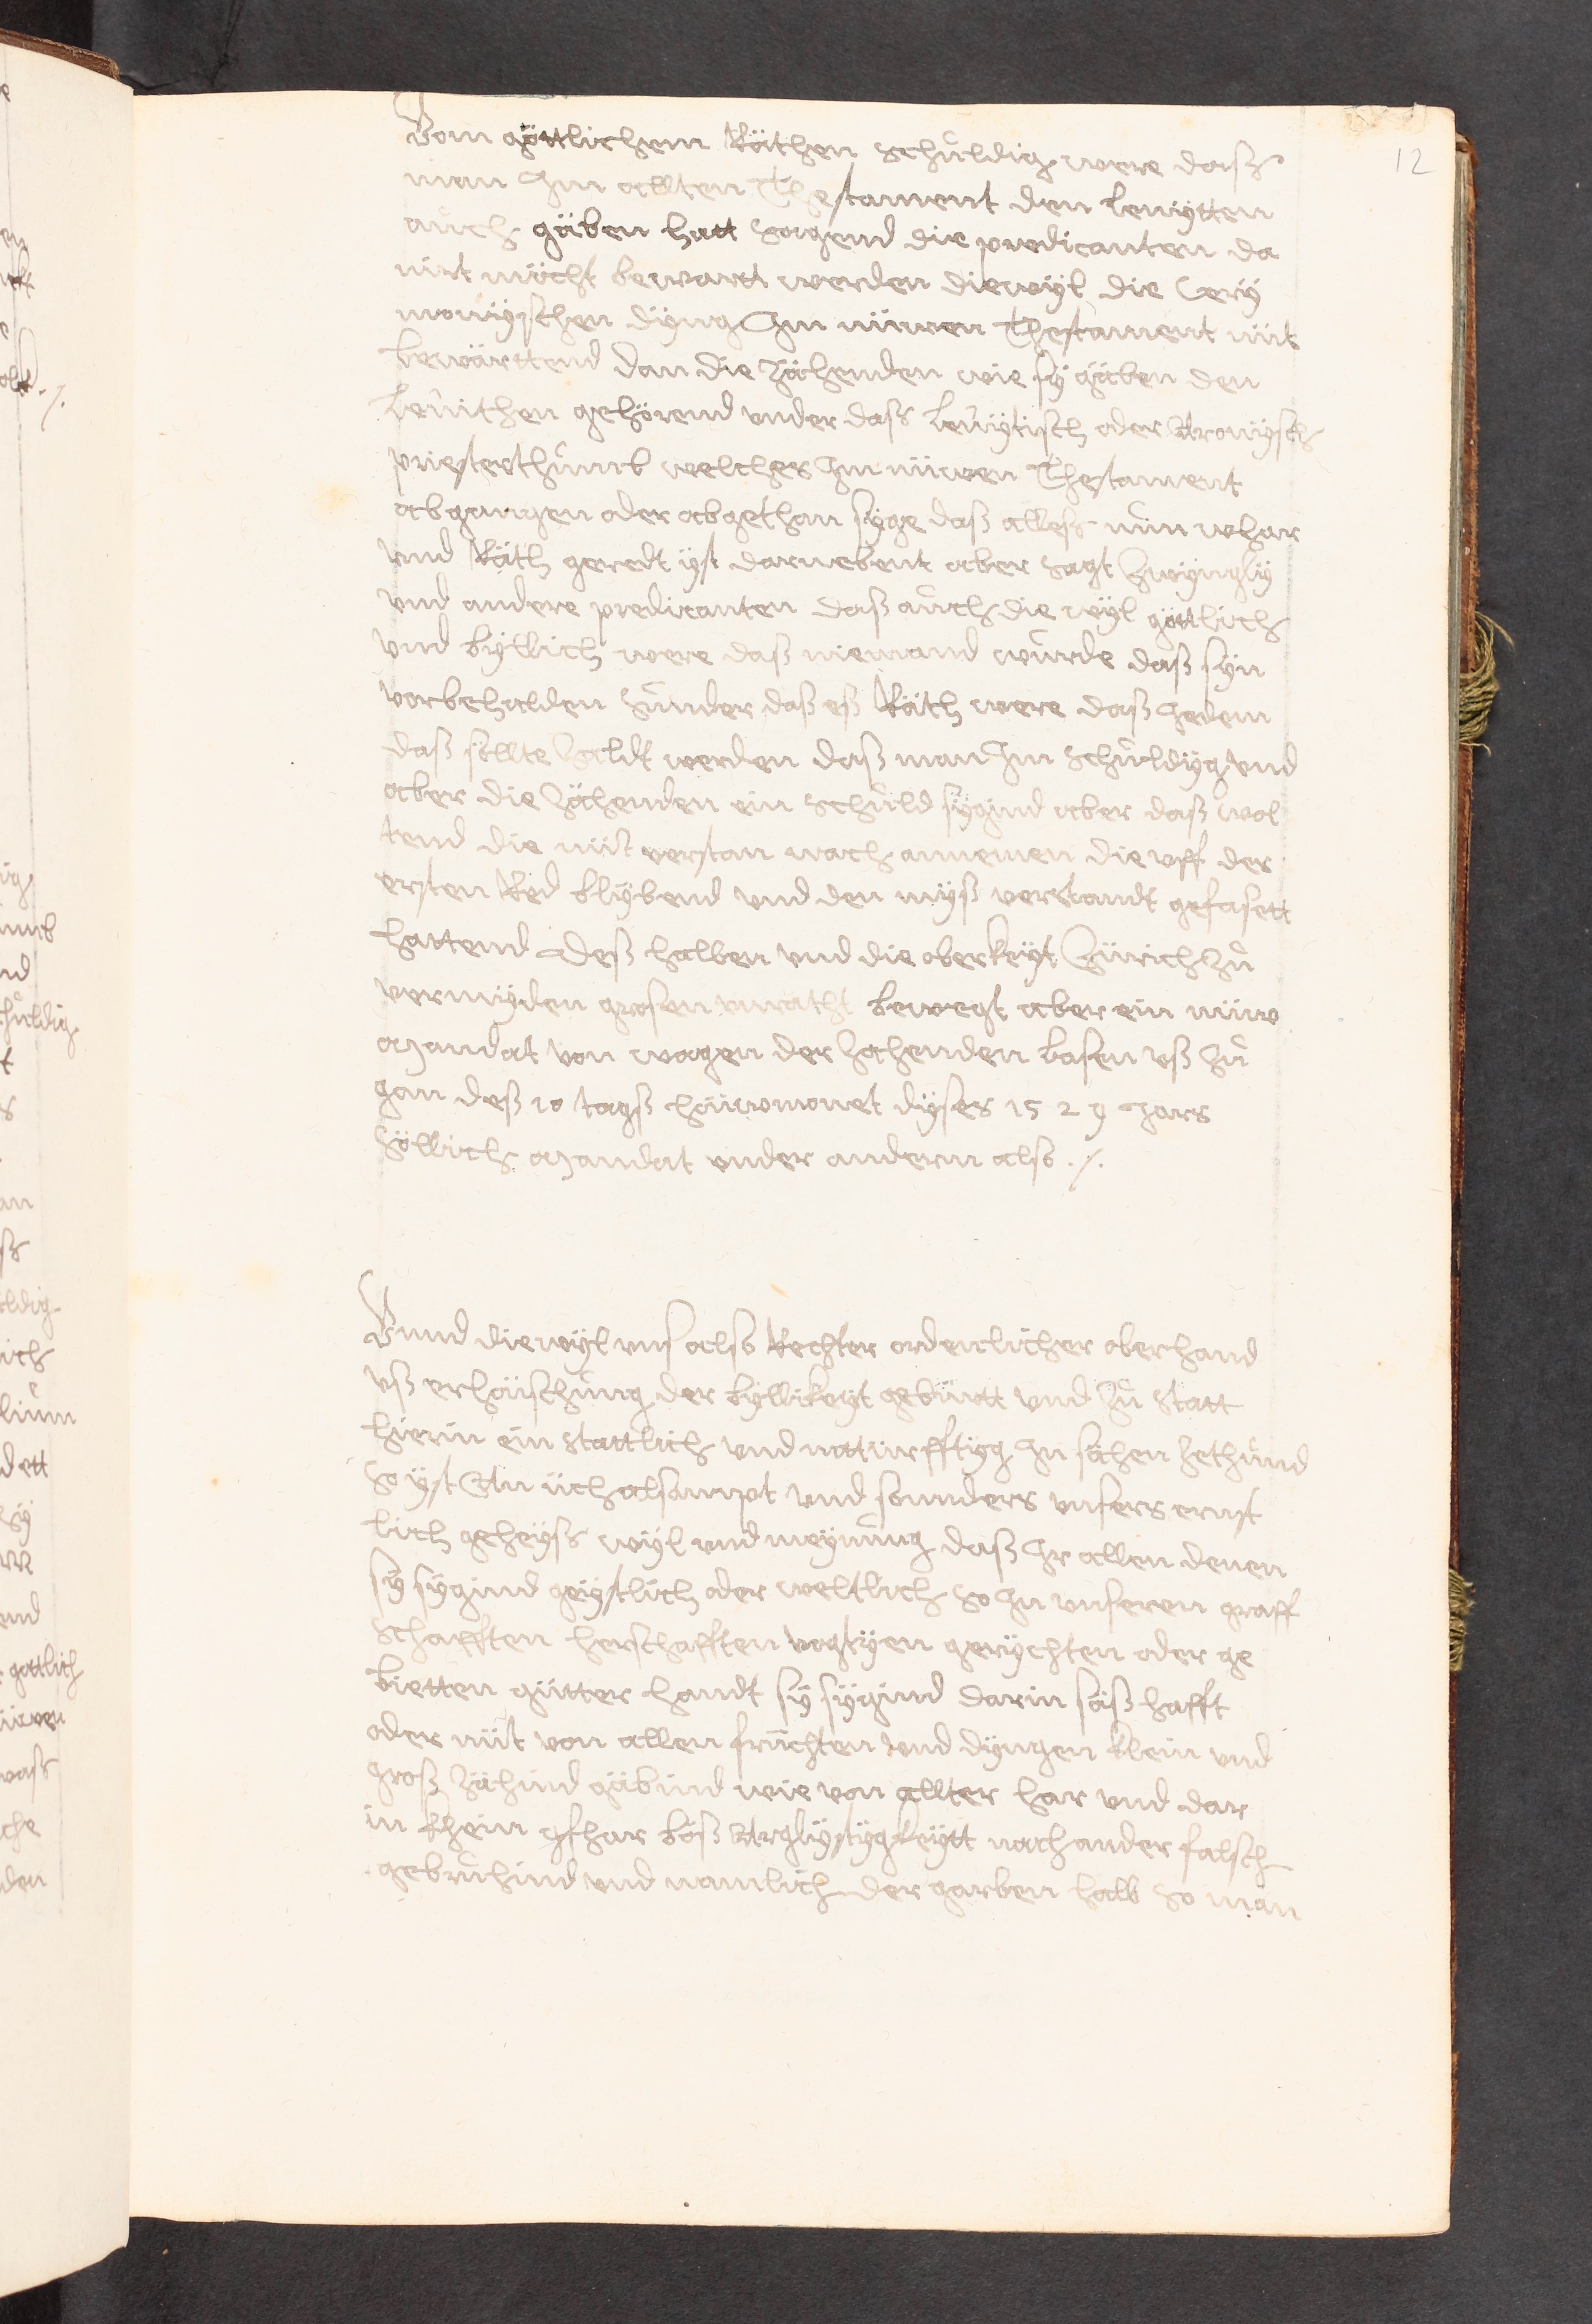 12
Vom göttlichem Räthen schůldig were dass
man Jm allten Thestament den Levytten
aůch gäben hatt sagend die predicanten da
nit möcht bewart werden diewyl die Cery
monyschen dyng Jm nüwen Thestament nüt
bewärttend dan die Zähenden wie sy gäben den
Levithen gehörend vnder dass Levytisch oder Aronysch
priesterthůmb welches Jm nüwen Thestament
abgangen oder abgethan syge dass alless nůn whar
vnd Räth geredt yst darnebent aber sagt Zwyngly
vnd andere predicanten dass aůch die wyl göttlich
vnd byllich were dass niemand würde dass syn
vorbehalden sůnder dass ess Räth were dass Jedem
dass söllte Zaldt werden dass man Jm schůldyg vnd
aber die Zächenden ein schůld sygind aber dass wol
tend die nüt verstan nach annemen die vff der
ersten Red blybend vnd den myss verstandt gefasett
hattend Dess halben vnd die oberkeyt Zürich Zů
vermyden grosen vnrath bewegt aber ein nüw
Mandat von wägen der Zächenden lasen vss Zů
gan dess 10 tags Höüwmonet dyses 1529 Jars
söllich Mandat vnder andern also ./.
Vnnd diewyl vns also Rechter ordenlicher oberhand
vss erhöüschůng der byllikeyt gebürtt vnd Zů statt
hierin ein stattlich vnd nottürfftyg Jn sächen Zethůnd
so yst An üch alsampt vnd sonnders vnsers ernst
lich geheyss wyl vnd meynůng dass Jr allen denen
sy sygind geystlich oder weltlich so Jn vnseren graff
schafften herschafften vogtyen gerychten oder ge
bietten gütter handt sy sygind darin säss hafft
oder nüt von allen früchten vnd dyngen klein vnd
gross Zähind gäbind wie von allter har vnd dar
in khein gfhar böss Arglystygkeytt nach ander falsch
gebrůchind vnd namlich der garben halb so man